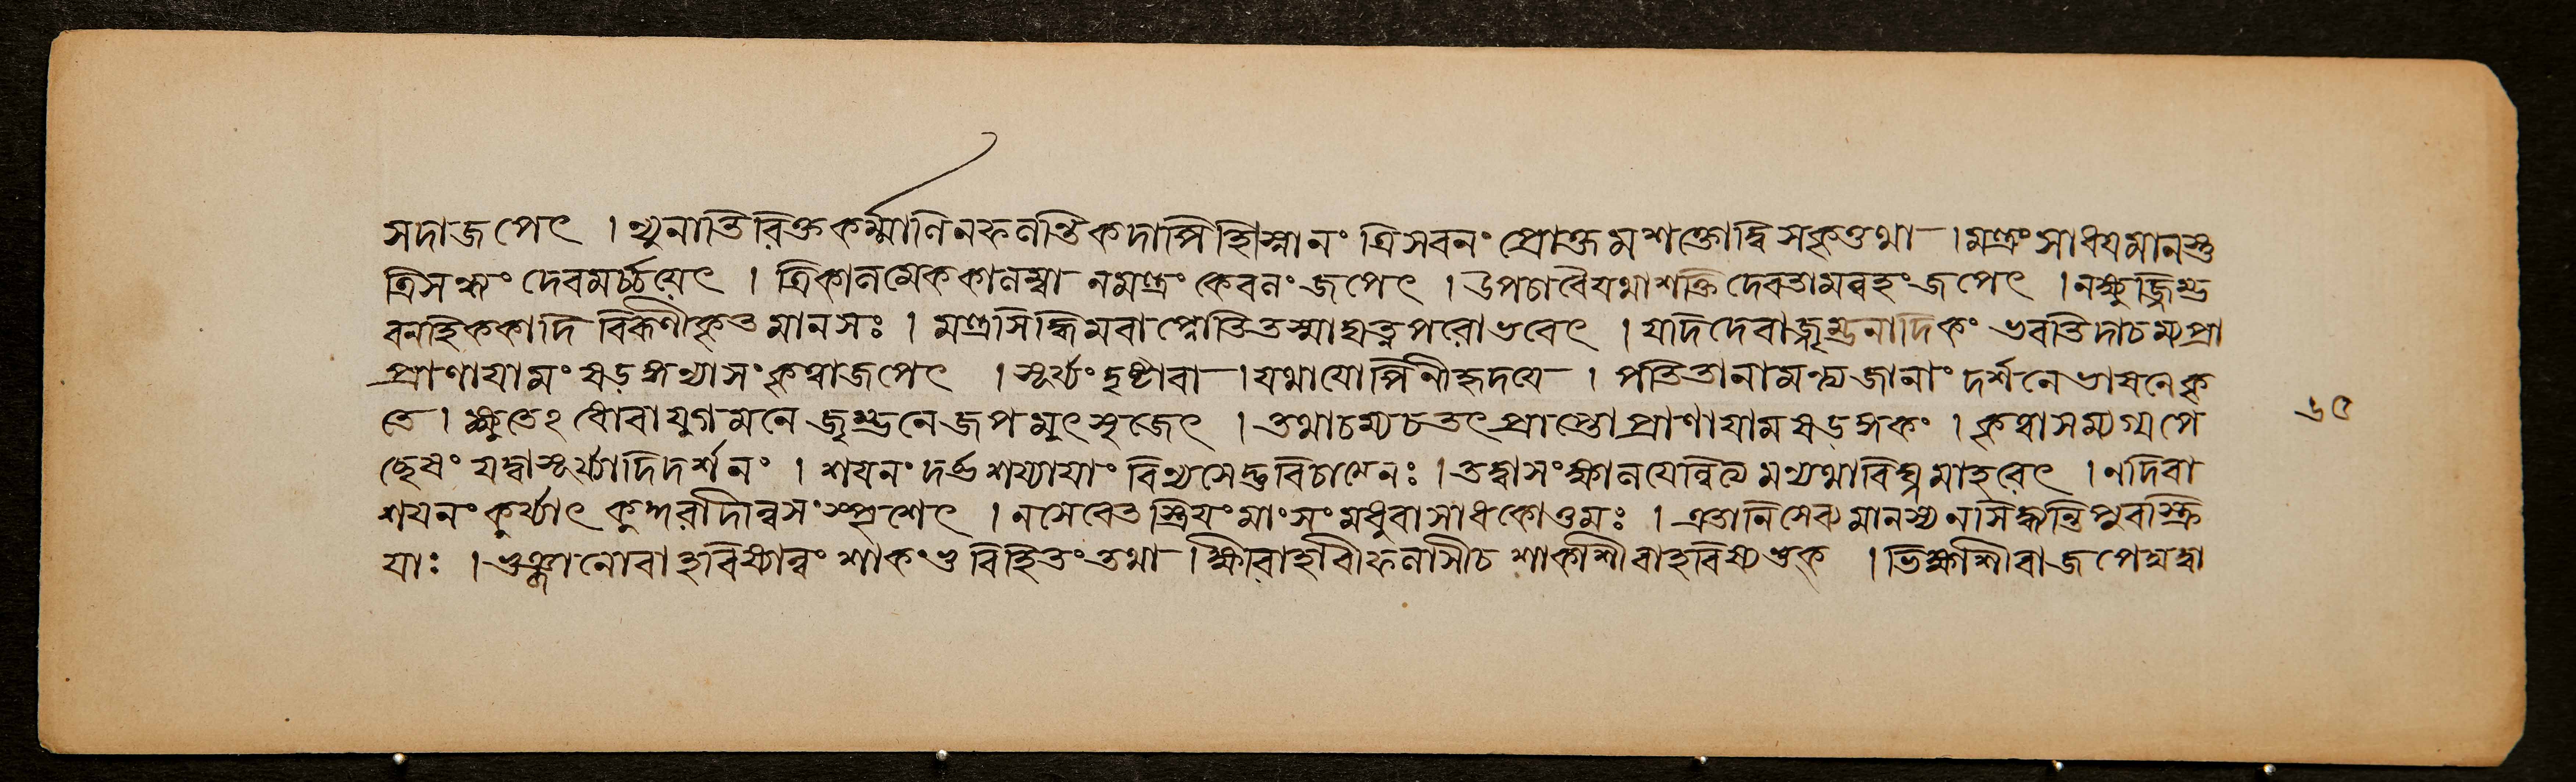 সদাজপেৎ । ন্যুনাতিরিক্তকর্ম্মাণিনফলন্তিকদাপিহিস্নানং ত্রিসবনং প্রোক্তমশক্তোদ্বিসকৃত্তথা । মন্ত্রং সাধয়মানস্তু
ত্রিসন্ধ্যং দেবমর্চ্চয়েৎ । ত্রিকালমেককালম্বা নমন্ত্রং কেবলং জপেৎ । উপচারৈর্যথাশক্তি দেবতামন্বহং জপেৎ । নক্ষুজ্জিম্ভ্র
মানসঃ । মন্ত্রসিদ্ধিমবাপ্নোতিতস্মাদ্যত্নপরোভবেৎ । যদিদেবাজ্জৃম্ভনাদিকং ভবতিদাচম্যপ্রা
প্রাণায়ামং ষড়ঙ্গন্যাসং কৃত্বাজপেৎ । সূর্য্যং দৃষ্ট্বাবা । যথাযোগিনীহৃদয়ে । পতিতানামন্ত্যজানাং দর্শনেভাষনেকৃ
তে । ক্ষুতেঽধোবায়ুগমনে জৃম্ভনেজপমুৎসৃজেৎ । তথাচম্যচতৎপ্রাপ্তোপ্রাণায়ামষড়ঙ্গকং । কৃত্বাসম্যগ্জপে
চ্ছেষং যদ্বাসূর্য্যাদিদর্শনং । শয়নং দর্ভশয্যায়াং বিন্যসেত্তু তদ্বাসংক্ষালয়েন্নিত্যমন্যথাবিঘ্নমাহরেৎ । নদিবা
শয়নং কুর্য্যাৎ সংস্পৃশেৎ । নসেবেতস্ত্রিয়ং মাংসং মধুবাসাধকোত্তমঃ । এতানিসেব্যমানস্যনসিদ্ধ্যন্তিপুরস্ক্রি
য়াঃ । ভুঞ্জানোবাহবিষ্যান্নং শাকং ও বিহিতং তথা । ক্ষীরাহারীফলাসীচ শাকাশীবাহবিষ্যভুক । ভিক্ষাশীবাজপেদ্যদ্বা
৬৫